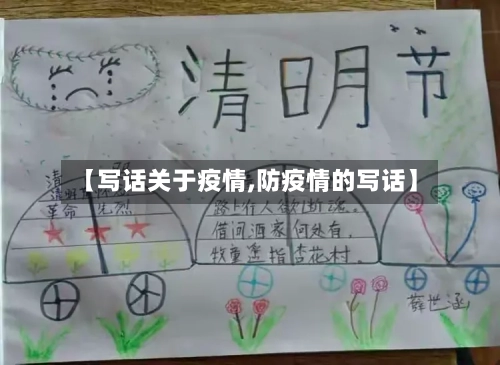 清明节
【写话关于疫情,防疫情的写话】
革命先烈
路上行人欲断魂。
借问酒家何处有,
牧童遥指杏花村。
薛世涵